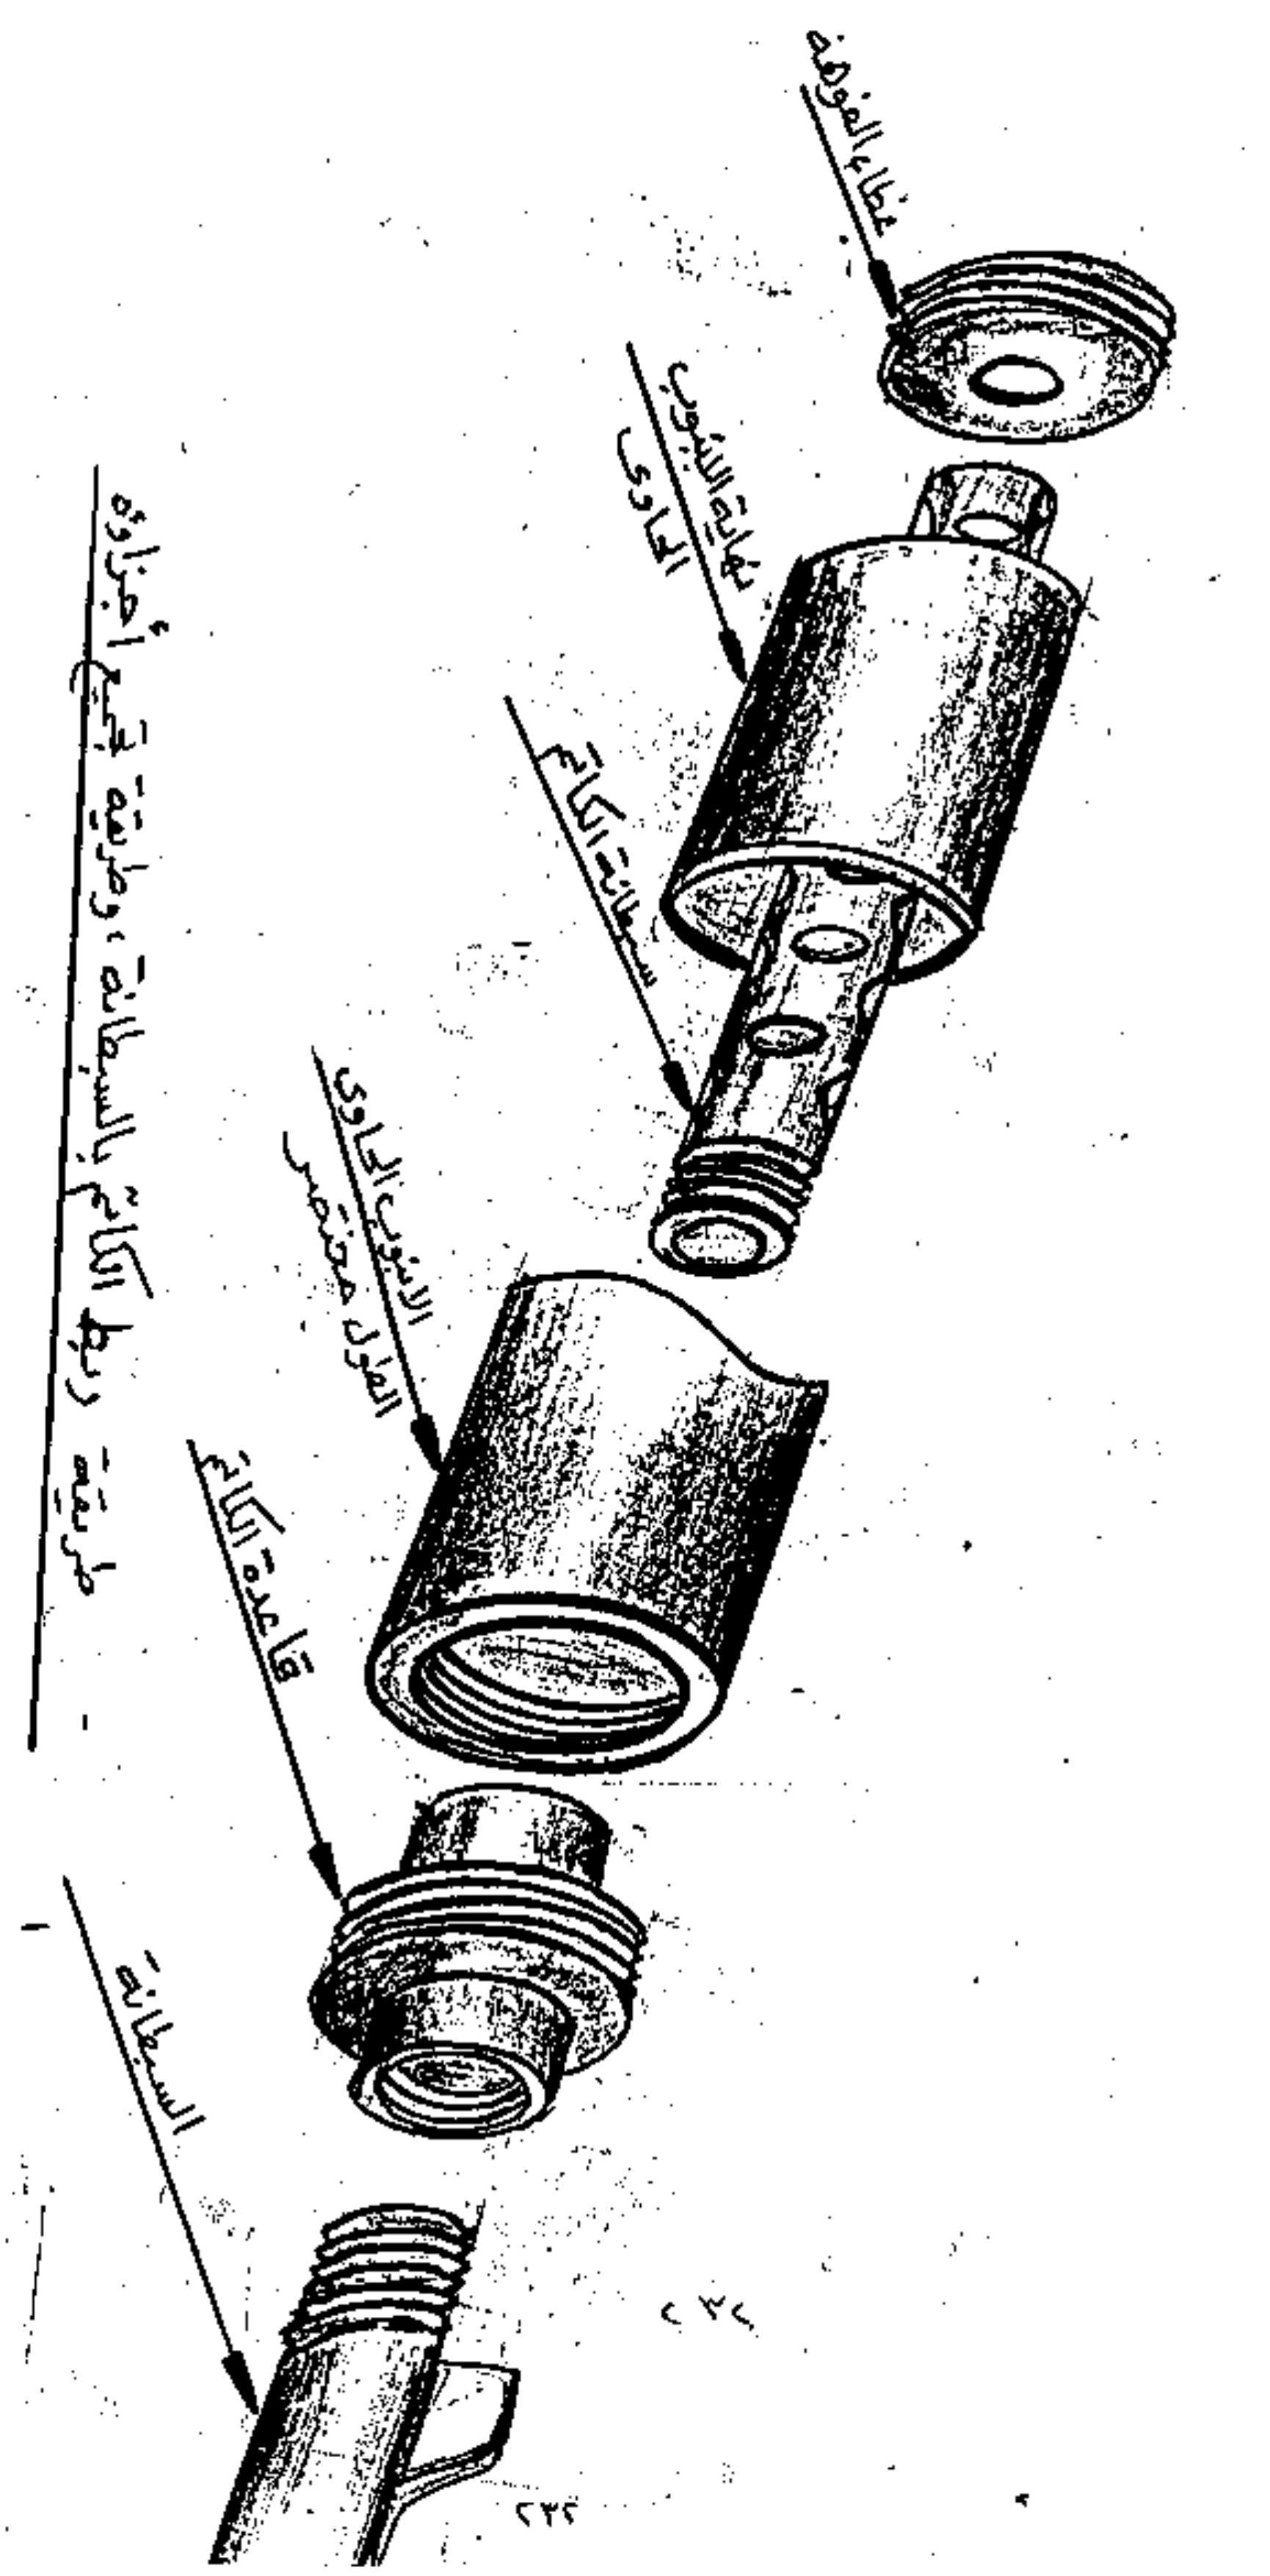 غطاء الفوهة
نهاية الانبوب
الحاوى
سبطانة الكاتم
الانبوب الحاوى
الطول مختصر
قاعدة الكاتم
السبطانة
- طريقة ربط الكاتم بالسبطانة، وطريقة تجميع أجزاؤه
٢٣٢
٢٣٢